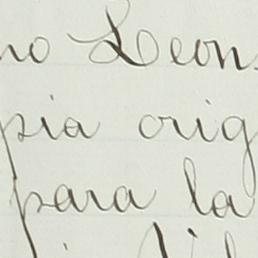 no Leon
pia orig
para la